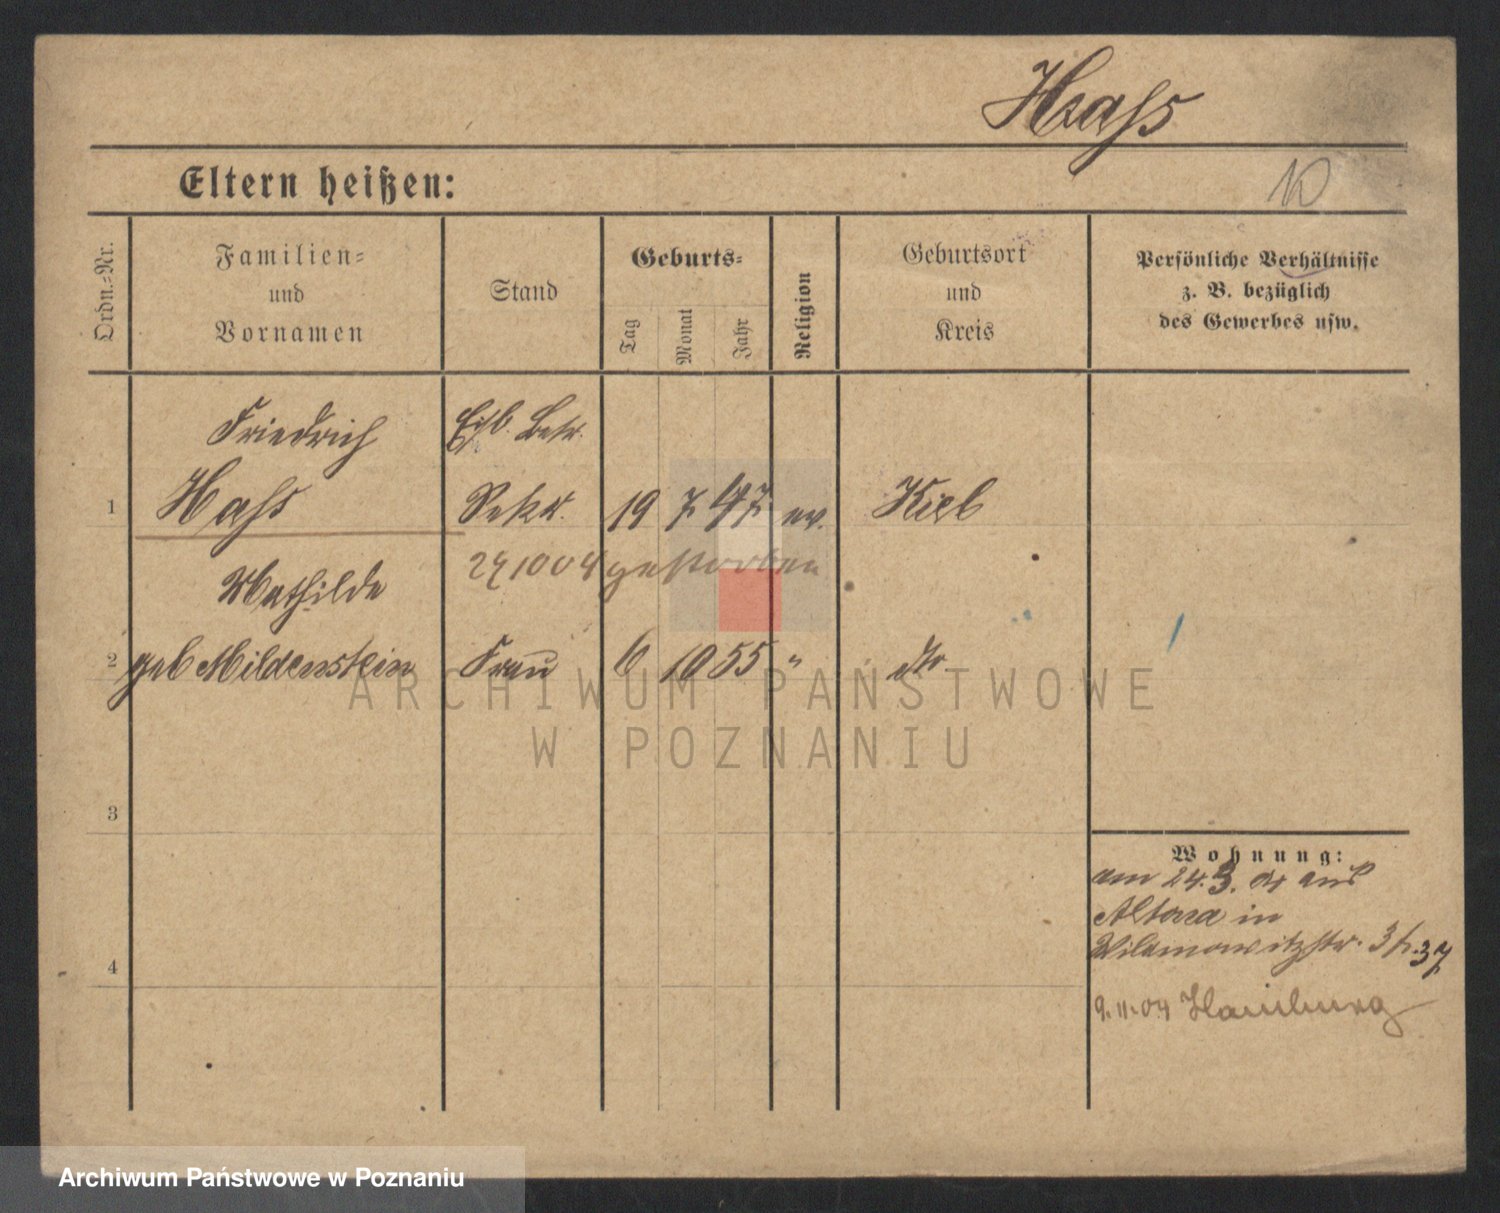 Haaß
10
Eltern heißen:
Ordn.-Nr.
Familien-
und
Vornamen
Stand
Geburts-
Tag
Monat
Jahr
Religion
Geburtsort
und
Kreis
Persönliche Verhältnisse
z. B. bezüglich
des Gewerbes usw.
Friedrich Eisb. Betr.
1 Haß Sekr. 19 7 47 ev. Kiel
24 10 04 gestorben
Mathilde
2 geb Mildenstein Frau 6 10 55 " do
3
4
Wohnung:
am 24.3. 04 aus
Altona in
Wilamowitzstr. 37
9.11.04 Hamburg
ARCHIWUM PAŃSTWOWE
W POZNANIU
Archiwum Państwowe w Poznaniu